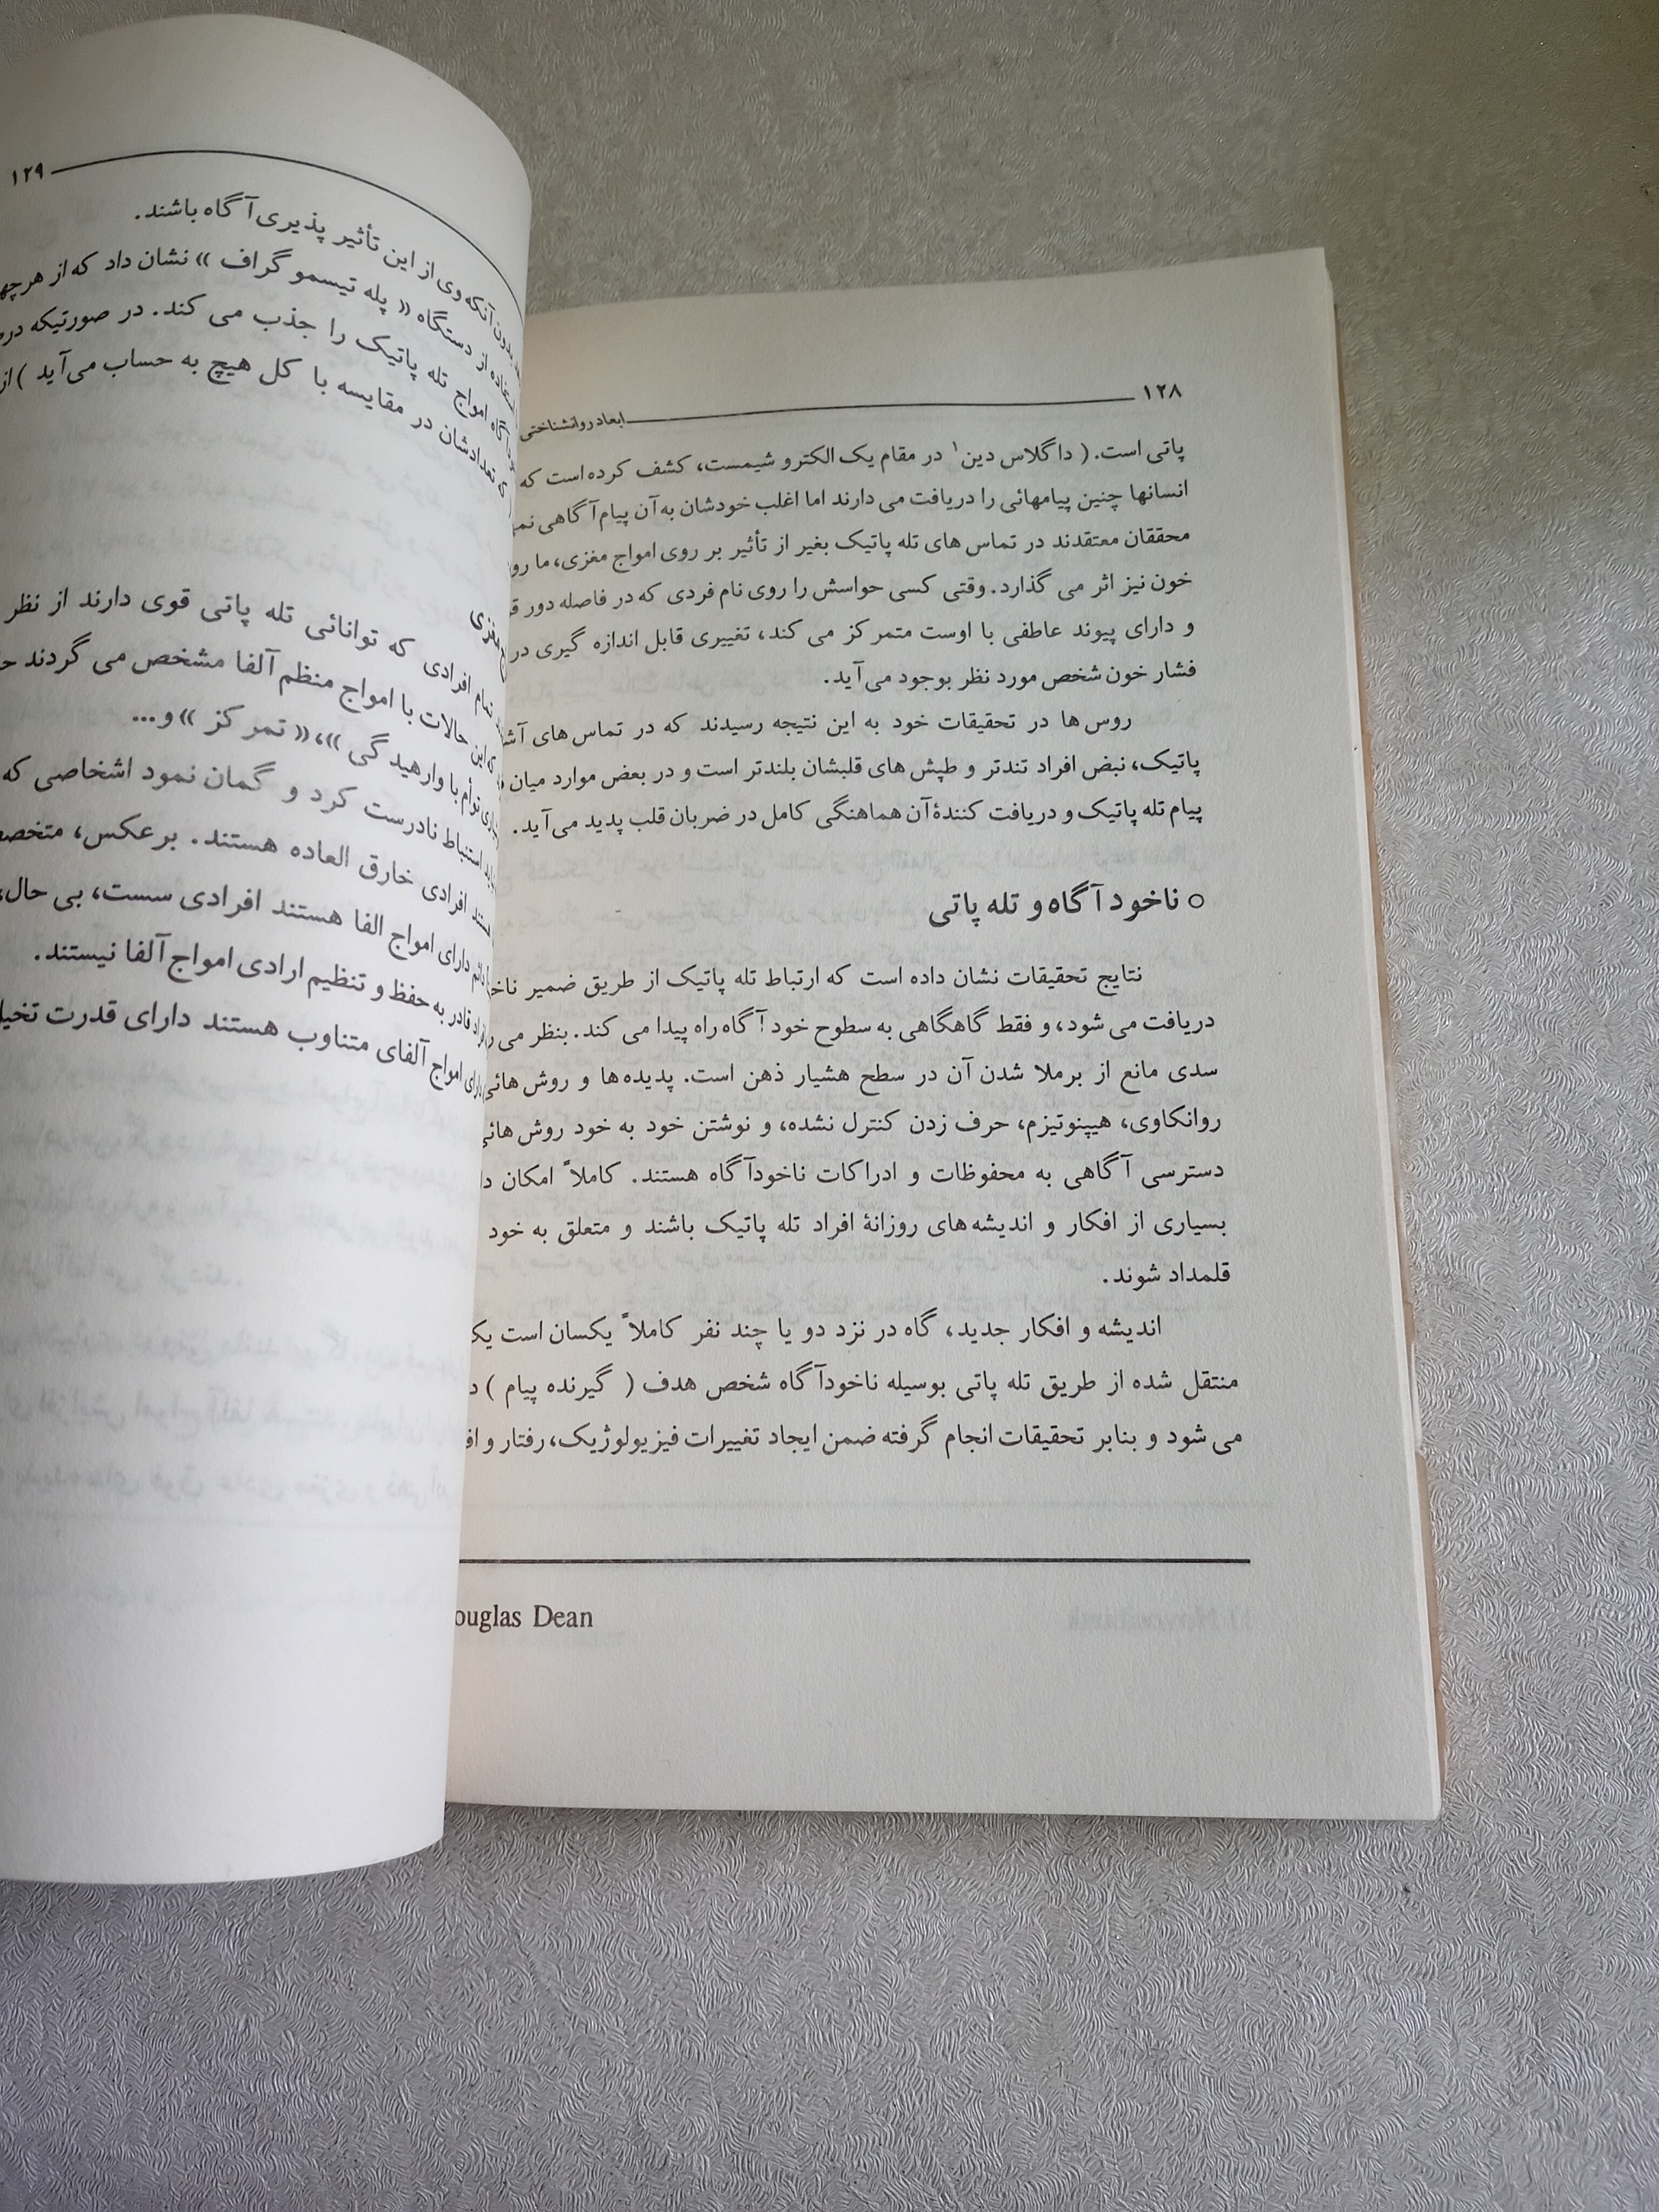 ۱۲۸
ابعاد روانشناختی
پاتی است. ( داگلاس دین۱ در مقام یک الکترو شیمست، کشف کرده است که
انسانها چنین پیامهائی را دریافت می دارند اما اغلب خودشان به آن پیام آگاهی
محققان معتقدند در تماس های تله پاتیک بغیر از تأثیر بر روی امواج مغزی، ما
خون نیز اثر می گذارد. وقتی کسی حواسش را روی نام فردی که در فاصله دور
و دارای پیوند عاطفی با اوست متمرکز می کند، تغییری قابل اندازه گیری در
فشار خون شخص مورد نظر بوجود می آید.
روس ها در تحقیقات خود به این نتیجه رسیدند که در تماس های
پاتیک، نبض افراد تندتر و طپش های قلبشان بلندتر است و در بعض موارد میان
پیام تله پاتیک و دریافت کنندۀ آن هماهنگی کامل در ضربان قلب پدید می آید.
○ ناخودآگاه و تله پاتی
نتایج تحقیقات نشان داده است که ارتباط تله پاتیک از طریق ضمیر
دریافت می شود، و فقط گاهگاهی به سطوح خودآگاه راه پیدا می کند. بنظر می
سدی مانع از برملا شدن آن در سطح هشیار ذهن است. پدیده ها و روش هائی
روانکاوی، هیپنوتیزم، حرف زدن کنترل نشده، و نوشتن خود به خود روش هائی
دسترسی آگاهی به محفوظات و ادراکات ناخودآگاه هستند. کاملاً امکان
بسیاری از افکار و اندیشه های روزانۀ افراد تله پاتیک باشند و متعلق به خود
قلمداد شوند.
اندیشه و افکار جدید، گاه در نزد دو یا چند نفر کاملاً یکسان است
منتقل شده از طریق تله پاتی بوسیله ناخودآگاه شخص هدف ( گیرنده پیام )
می شود و بنابر تحقیقات انجام گرفته ضمن ایجاد تغییرات فیزیولوژیک، رفتار و
ouglas Dean
۱۲۹
بدون آنکه وی از این تأثیر پذیری آگاه باشند.
از دستگاه « پله تیسمو گراف » نشان داد که از
امواج تله پاتیک را جذب می کند. در صورتیکه
تعدادشان در مقایسه با کل هیچ به حساب می آید ) از
مغزی
تمام افرادی که توانائی تله پاتی قوی دارند از نظر
این حالات با امواج منظم آلفا مشخص می گردند
توأم با وارهیدگی »، « تمرکز » و...
استنباط نادرست کرد و گمان نمود اشخاصی که
افرادی خارق العاده هستند. برعکس،
دارای امواج الفا هستند افرادی سست، بی حال،
قادر به حفظ و تنظیم ارادی امواج آلفا نیستند.
امواج آلفای متناوب هستند دارای قدرت